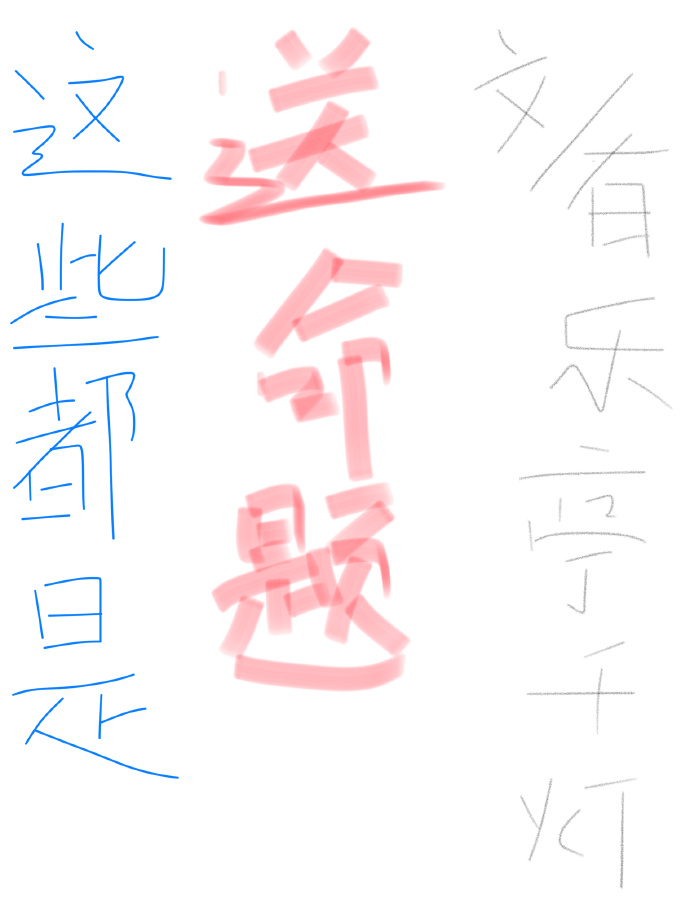 这些都是
送命题
文/有乐亭千灯